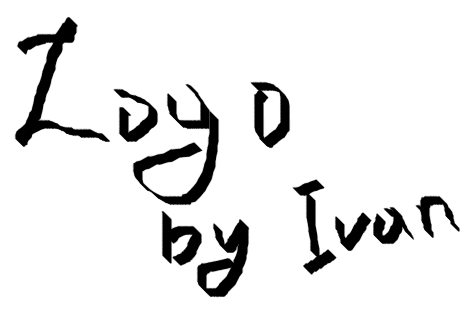 Logo
by Ivan